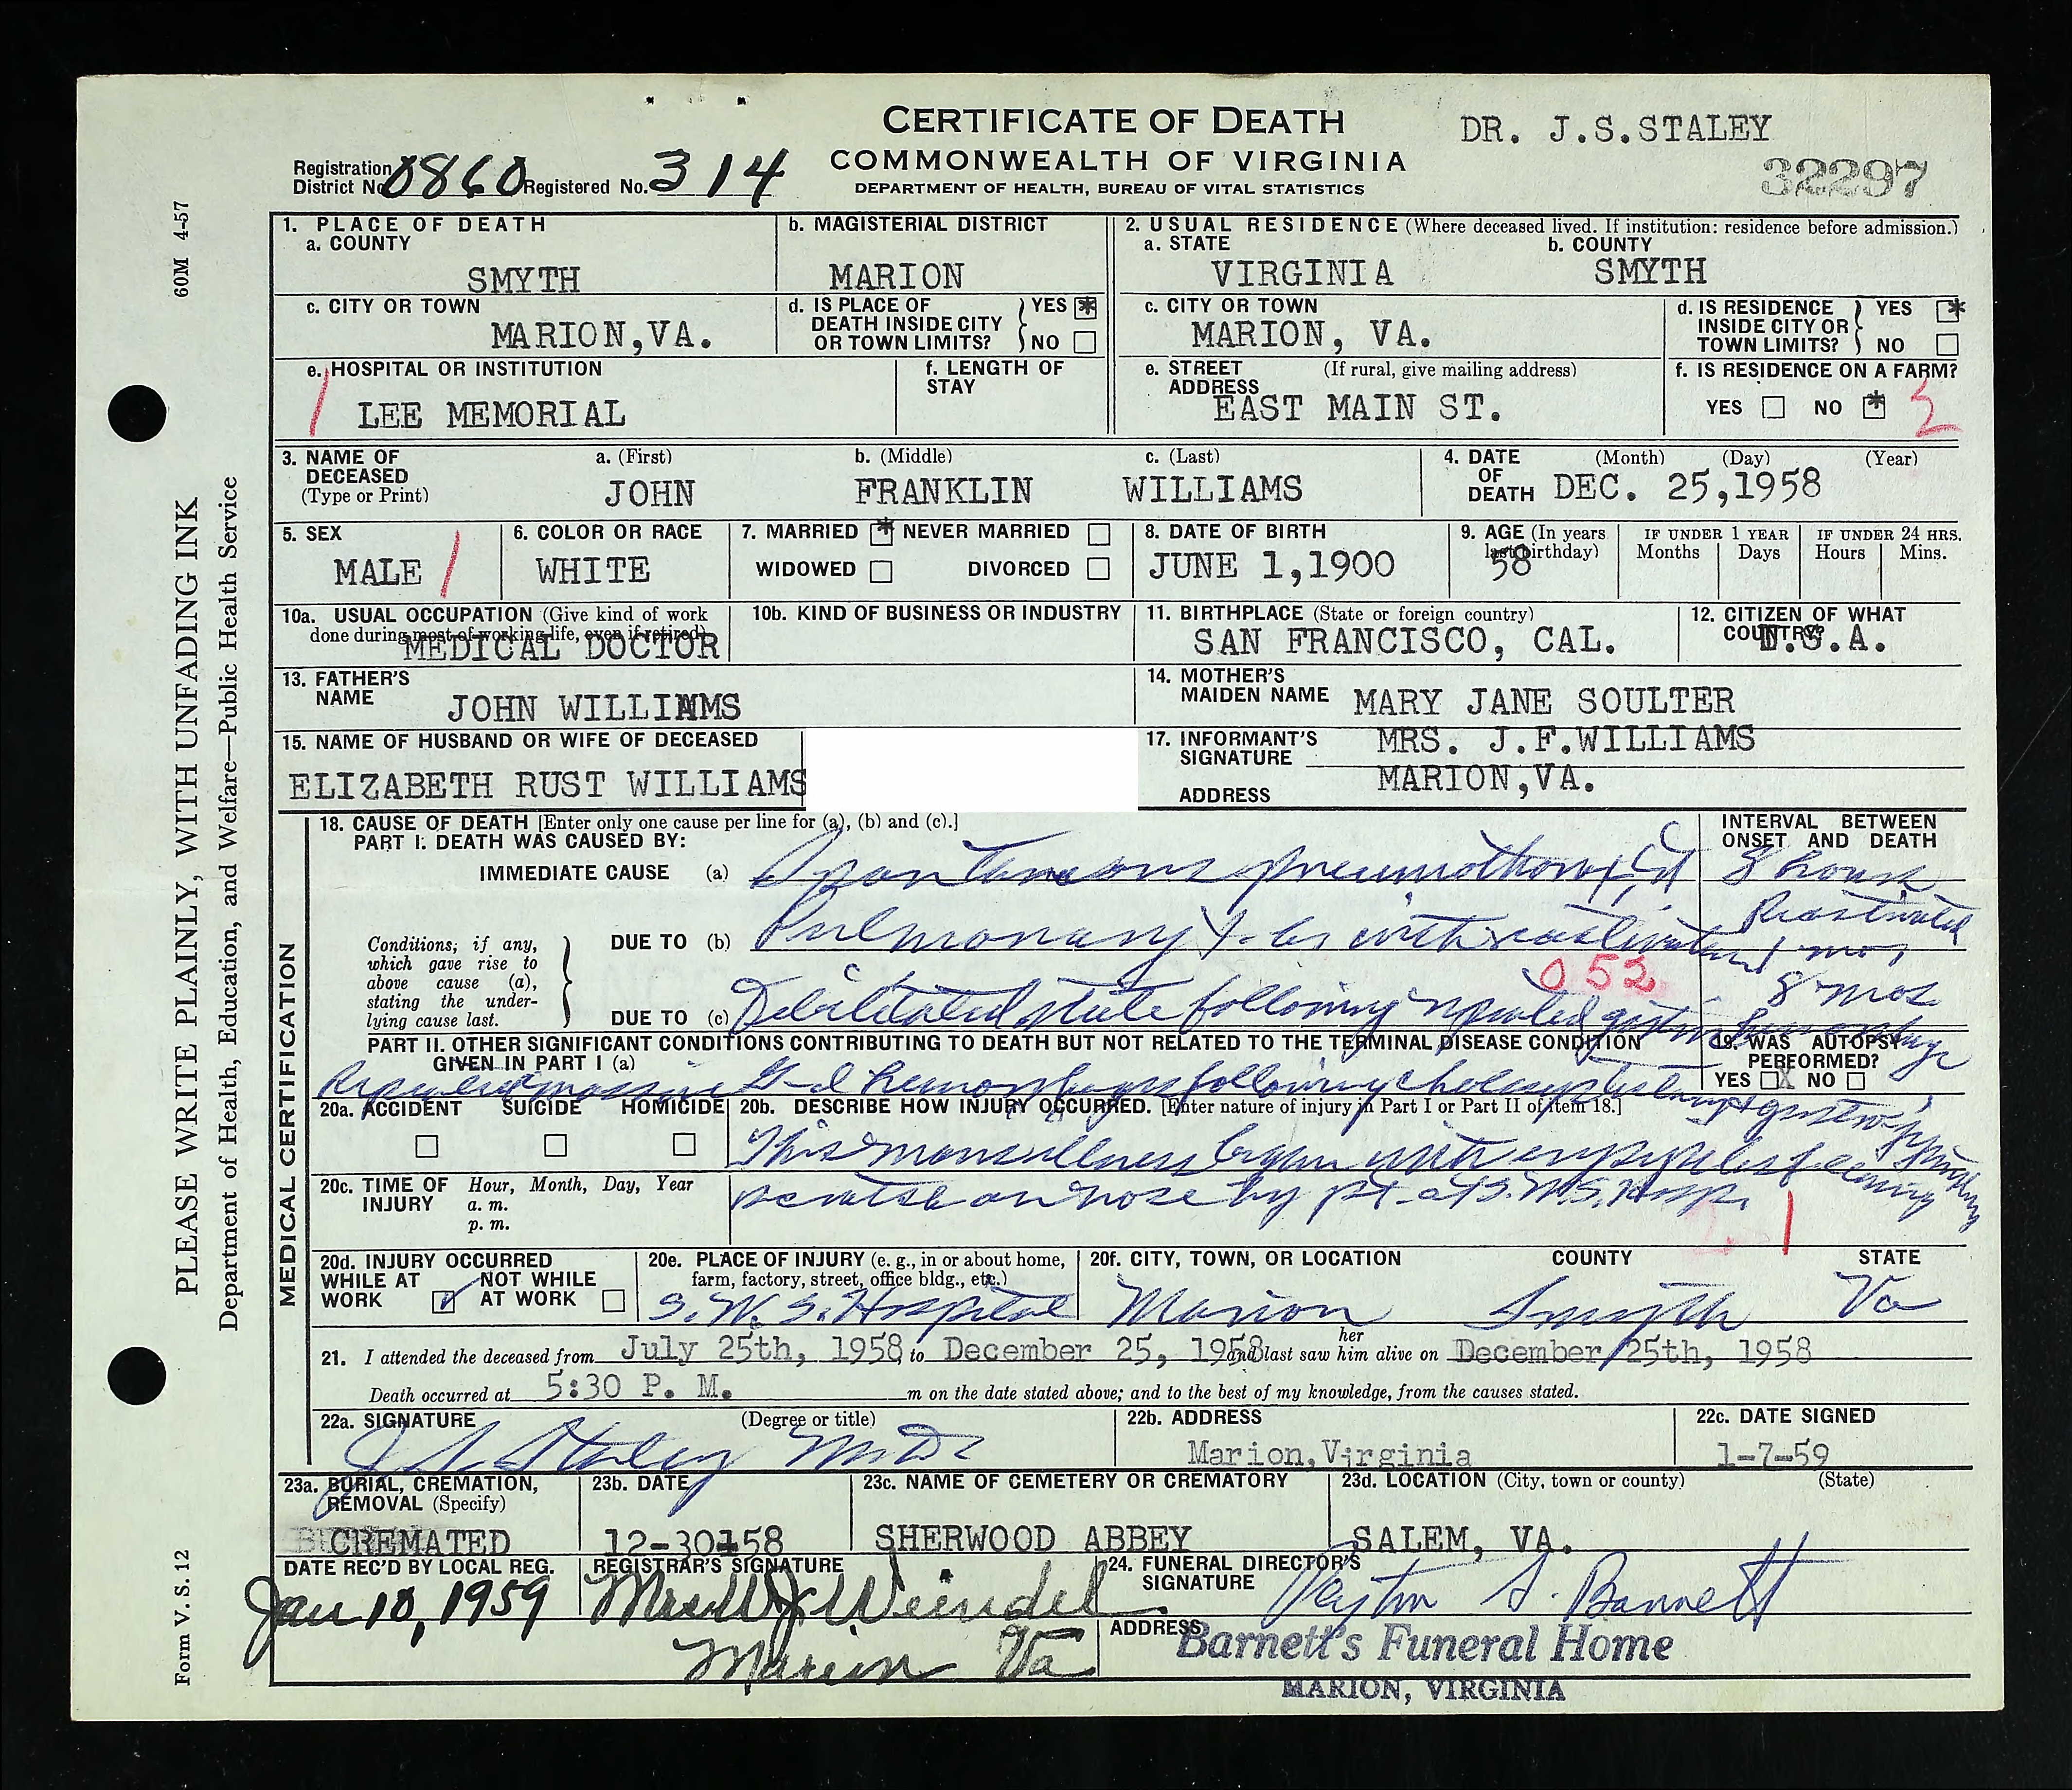 CERTIFICATE OF DEATH
DR. J.S.STALEY
COMMONWEALTH OF VIRGINIA
DEPARTMENT OF HEALTH, BUREAU OF VITAL STATISTICS
32297
Registration District No. 0860 Registered No. 314
60M 4-57
PLEASE WRITE PLAINLY, WITH UNFADING INK
Department of Health, Education, and Welfare—Public Health Service
Form V. S. 12
1. PLACE OF DEATH
a. COUNTY
SMYTH
b. MAGISTERIAL DISTRICT
MARION
2. USUAL RESIDENCE (Where deceased lived. If institution: residence before admission.)
a. STATE
VIRGINIA
b. COUNTY
SMYTH
c. CITY OR TOWN
MARION,VA.
d. IS PLACE OF DEATH INSIDE CITY OR TOWN LIMITS? YES * NO
c. CITY OR TOWN
MARION, VA.
d. IS RESIDENCE INSIDE CITY OR TOWN LIMITS? YES * NO
e. HOSPITAL OR INSTITUTION
1 LEE MEMORIAL
f. LENGTH OF STAY
e. STREET ADDRESS (If rural, give mailing address)
EAST MAIN ST.
f. IS RESIDENCE ON A FARM?
YES NO *
3. NAME OF DECEASED (Type or Print)
a. (First) b. (Middle) c. (Last)
JOHN FRANKLIN WILLIAMS
4. DATE OF DEATH (Month) (Day) (Year)
DEC. 25,1958
5. SEX
MALE 1
6. COLOR OR RACE
WHITE
7. MARRIED * NEVER MARRIED
WIDOWED DIVORCED
8. DATE OF BIRTH
JUNE 1,1900
9. AGE (In years last birthday)
58
IF UNDER 1 YEAR
Months Days
IF UNDER 24 HRS.
Hours Mins.
10a. USUAL OCCUPATION (Give kind of work done during most of working life, even if retired)
MEDICAL DOCTOR
10b. KIND OF BUSINESS OR INDUSTRY
11. BIRTHPLACE (State or foreign country)
SAN FRANCISCO, CAL.
12. CITIZEN OF WHAT COUNTRY?
U.S.A.
13. FATHER'S NAME
JOHN WILLIAMS
14. MOTHER'S MAIDEN NAME
MARY JANE SOULTER
15. NAME OF HUSBAND OR WIFE OF DECEASED
ELIZABETH RUST WILLIAMS
17. INFORMANT'S SIGNATURE
MRS. J.F.WILLIAMS
ADDRESS
MARION,VA.
MEDICAL CERTIFICATION
18. CAUSE OF DEATH [Enter only one cause per line for (a), (b) and (c).]
PART I. DEATH WAS CAUSED BY:
INTERVAL BETWEEN ONSET AND DEATH
IMMEDIATE CAUSE (a) Spontaneous pneumothorax
8 hours
Conditions, if any, which gave rise to above cause (a), stating the underlying cause last.
DUE TO (b) Pulmonary t-bc with reactivation
Reactivated
1 mo,
052
DUE TO (c) Debilitated state following repeated gastric hemorrhage
8 mos
PART II. OTHER SIGNIFICANT CONDITIONS CONTRIBUTING TO DEATH BUT NOT RELATED TO THE TERMINAL DISEASE CONDITION GIVEN IN PART I (a)
Repeated massive G-I hemorrhages following cholecystectomy
19. WAS AUTOPSY PERFORMED?
YES X NO
20a. ACCIDENT SUICIDE HOMICIDE
20b. DESCRIBE HOW INJURY OCCURRED. [Enter nature of injury in Part I or Part II of item 18.]
This mans illness began with erysipelas following
scratch on nose by pt. at S.W.S. Hosp.
20c. TIME OF INJURY Hour, Month, Day, Year
a. m.
p. m.
1
20d. INJURY OCCURRED
WHILE AT WORK ✓ NOT WHILE AT WORK
20e. PLACE OF INJURY (e. g., in or about home, farm, factory, street, office bldg., etc.)
S.W.S. Hospital
20f. CITY, TOWN, OR LOCATION COUNTY STATE
Marion Smyth Va
21. I attended the deceased from July 25th, 1958, to December 25, 1958 and last saw her him alive on December 25th, 1958
Death occurred at 5:30 P. M. m on the date stated above; and to the best of my knowledge, from the causes stated.
22a. SIGNATURE (Degree or title)
J. S. Staley M.D.
22b. ADDRESS
Marion,Virginia
22c. DATE SIGNED
1-7-59
23a. BURIAL, CREMATION, REMOVAL (Specify)
CREMATED
23b. DATE
12-30-58
23c. NAME OF CEMETERY OR CREMATORY
SHERWOOD ABBEY
23d. LOCATION (City, town or county) (State)
SALEM, VA.
DATE REC'D BY LOCAL REG.
Jan 10, 1959
REGISTRAR'S SIGNATURE
Mrs W J Weindel
Marion Va
24. FUNERAL DIRECTOR'S SIGNATURE
Peyton S. Barnett
ADDRESS
Barnett's Funeral Home
MARION, VIRGINIA